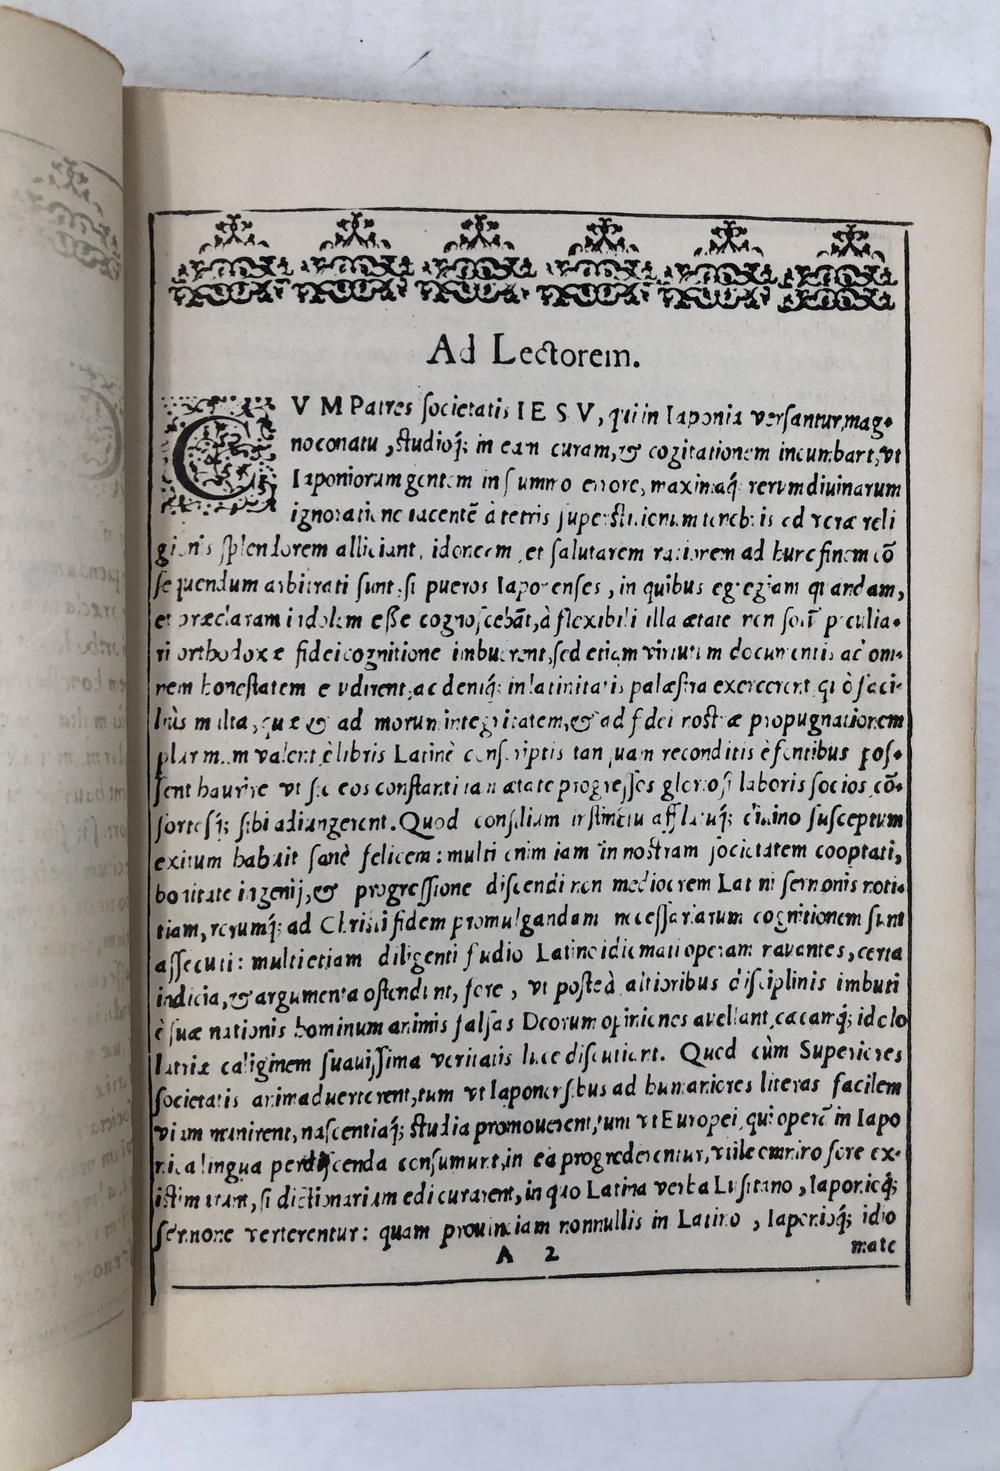 Ad Lectorem.
CVM Patres ſocietatis IESV, qui in Iaponia verſantur, mag-
no conatu, ſtudioq́; in eam curam, & cogitationem incumbant, vt
Iaponiorum gentem in ſummo errore, maximaq́; rerum diuinarum
ignoratione iacentẽ à tetris ſuperſtitionum tenebris ad veræ reli
gionis ſplendorem alliciant, idoneam et ſalutarem rationem ad hunc finem cõ
ſequendum arbitrati ſunt, ſi pueros Iaponenſes, in quibus egregiam quandam,
et præclaram indolem eſſe cognoſcebãt, à flexibili illa ætate non ſolũ peculia-
ri orthodoxæ fidei cognitione imbuerent, ſed etiam virtutum documentis ad om-
nem honeſtatem erudirent, ac deniq́; in latinitatis palæſtra exercerent, quò faci-
liùs multa, quæ & ad morum integritatem, & ad fidei noſtræ propugnationem
plurimum valent è libris Latinè conſcriptis tanquam reconditis è fontibus poſ-
ſent haurire vt ſic eos conſtanti iam ætate progreſſos glorioſi laboris ſocios, cõ-
ſortesq́; ſibi adiungerent. Quod conſilium inſtinctu afflatuq́; diuino ſusceptum
exitum habuit ſanè felicem: multi enim iam in noſtram ſocietatem cooptati,
bonitate ingenij, & progreſſione diſcendi non mediocrem Latini ſermonis noti-
tiam, rerumq́; ad Chriſti fidem promulgandam neceſſariarum cognitionem ſunt
aſſecuti: multi etiam diligenti ſtudio Latino idiomati operam nauantes, certa
indicia, & argumenta oſtendunt, fore, vt poſteà altioribus diſciplinis imbuti
è ſuæ nationis hominum animis falſas Deorum opiniones auellant, cæcamq́; idolo
latriæ caliginem ſuauiſſima veritatis luce diſcutiant. Quod cùm Superiores
ſocietatis animaduerterent, tum vt Iaponenſibus ad humaniores literas facilem
viam munirent, naſcentiaq́; ſtudia promouerent, tum vt Europei, qui operã in Iapo
nica lingua perdiſcenda conſumunt, in ea progrederentur, vtile omnino fore ex-
iſtimarunt, ſi dictionarium edi curarent, in quo Latina verba Luſitano, Iaponicq́;
ſermone verterentur: quam prouinciam nonnullis in Latino, Iaponioq́; idio
A 2
mate